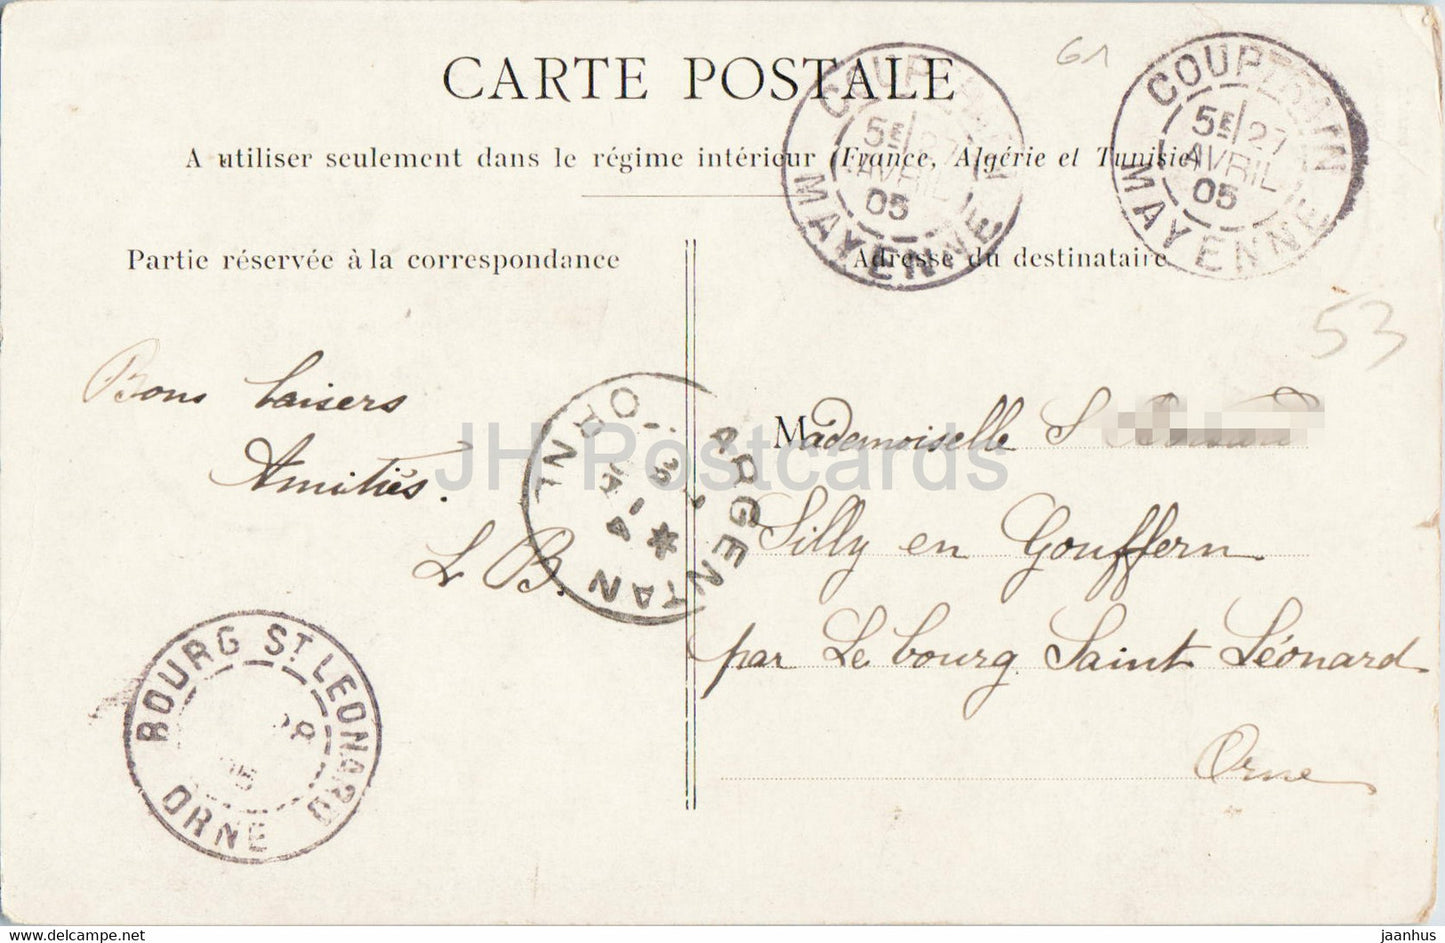 CARTE POSTALE
61
COUPTRAIN
MAYENNE
5E/27
AVRIL
05
COUPTRAIN
MAYENNE
5E/27
AVRIL
05
A utiliser seulement dans le régime intérieur (France, Algérie et Tunisie)
Partie réservée à la correspondance
Adresse du destinataire
53
Bons baisers
Amitiés.
L B.
Mademoiselle S
Silly en Gouffern
par Le bourg Saint Léonard
Orne
ARGENTAN
ORNE
BOURG ST LEONARD
ORNE
28
05
JH Postcards
www.delcampe.net
jaanhus